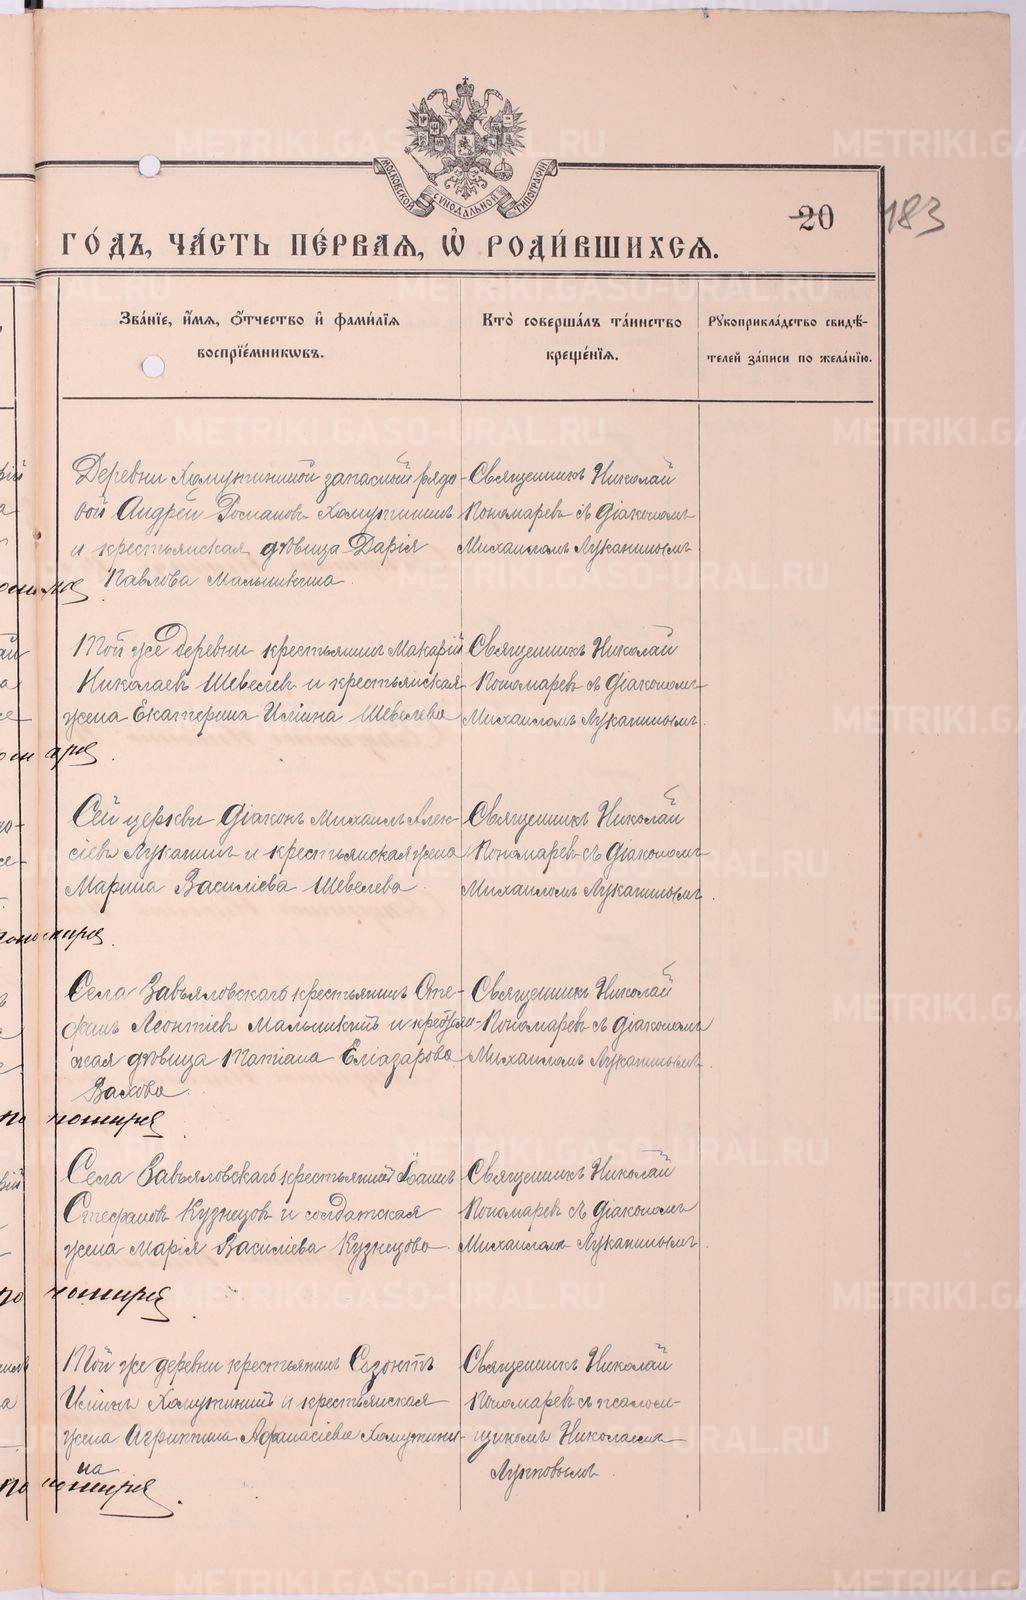 МОСКОВСКОЙ СѴНОДАЛЬНОЙ ТИПОГРАФІИ
20 183
ГО́ДЪ, ЧА́СТЬ ПЕ́РВАѦ, Ѽ РОДИ́ВШИХСѦ.
Зва́нїе, и҆́мѧ, ѻ҆́тчество и҆ фами́лїѧ
воспрїе́мникѡвъ.
Кто̀ соверша́лъ та́инство
креще́нїѧ.
Рꙋкоприкла́дство свидѣ́-
телей за́писи по жела́нїю.
Деревни Хомутининой запасный рядо-
вой Андрей Романовъ Хомутининъ
и крестьянская дѣвица Дарія
Павлова Малышкина
Священникъ Николай
Пономаревъ съ діакономъ
Михаиломъ Луканинымъ
Той же деревни крестьянинъ Макарій
Николаевъ Шевелевъ и крестьянская
жена Екатерина Иліина Шевелева
Священникъ Николай
Пономаревъ съ діакономъ
Михаиломъ Луканинымъ
Сей церкви діаконъ Михаилъ Алек-
сіевъ Луканинъ и крестьянская жена
Марина Василіева Шевелева
Священникъ Николай
Пономаревъ съ діакономъ
Михаиломъ Луканинымъ
Села Завьяловскаго крестьянинъ Сте-
фанъ Леонтіевъ Малышкинъ и крестьян-
ская дѣвица Татіана Еліазарова
Вахова
Священникъ Николай
Пономаревъ съ діакономъ
Михаиломъ Луканинымъ
Села Завьяловскаго крестьянинъ Іоаннъ
Стефановъ Кузнецовъ и солдатская
жена Марія Василіева Кузнецова
Священникъ Николай
Пономаревъ съ діакономъ
Михаиломъ Луканинымъ
Той же деревни крестьянинъ Созонтъ
Иліинъ Хомутининъ и крестьянская
жена Агриппина Афанасіева Хомутини-
на
Священникъ Николай
Пономаревъ съ псалом-
щикомъ Николаемъ
METRIKI.GASO-URAL.RU